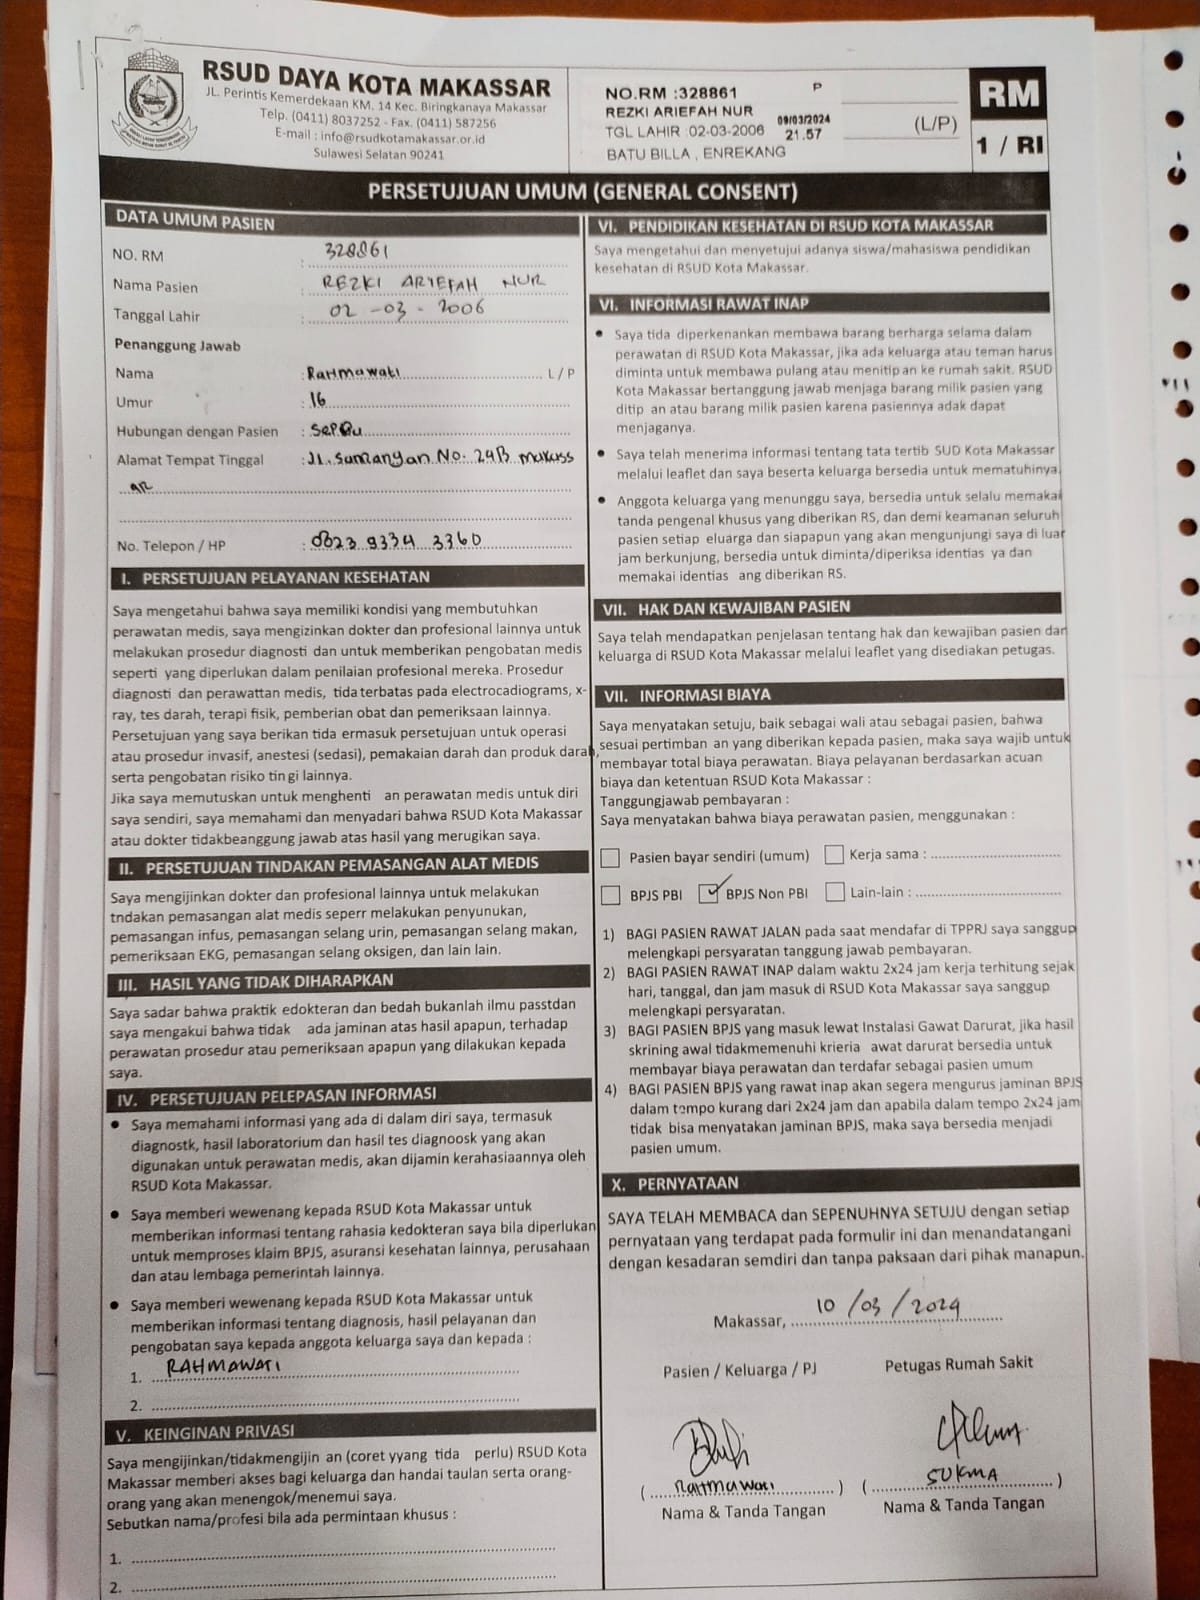 RSUD DAYA KOTA MAKASSAR
JL. Perintis Kemerdekaan KM. 14 Kec. Biringkanaya Makassar
Telp. (0411) 8037252 - Fax. (0411) 587256
E-mail : info@rsudkotamakassar.or.id
Sulawesi Selatan 90241
NO.RM :328861 P
REZKI ARIEFAH NUR
TGL LAHIR :02-03-2006
09/03/2024
21.57
(L/P)
BATU BILLA , ENREKANG
RM
1 / RI
PERSETUJUAN UMUM (GENERAL CONSENT)
DATA UMUM PASIEN
NO. RM : 328861
Nama Pasien : REZKI ARIEFAH NUR
Tanggal Lahir : 02 - 03 - 2006
Penanggung Jawab
Nama : Rahmawati L / P
Umur : 16
Hubungan dengan Pasien :
Alamat Tempat Tinggal : Jl. No. 29B Makass
ar
No. Telepon / HP : 0823 9334 3360
I. PERSETUJUAN PELAYANAN KESEHATAN
Saya mengetahui bahwa saya memiliki kondisi yang membutuhkan
perawatan medis, saya mengizinkan dokter dan profesional lainnya untuk
melakukan prosedur diagnosti dan untuk memberikan pengobatan medis
seperti yang diperlukan dalam penilaian profesional mereka. Prosedur
diagnosti dan perawattan medis, tida terbatas pada electrocadiograms, x-
ray, tes darah, terapi fisik, pemberian obat dan pemeriksaan lainnya.
Persetujuan yang saya berikan tida ermasuk persetujuan untuk operasi
atau prosedur invasif, anestesi (sedasi), pemakaian darah dan produk darah,
serta pengobatan risiko tin gi lainnya.
Jika saya memutuskan untuk menghenti an perawatan medis untuk diri
saya sendiri, saya memahami dan menyadari bahwa RSUD Kota Makassar
atau dokter tidakbeanggung jawab atas hasil yang merugikan saya.
II. PERSETUJUAN TINDAKAN PEMASANGAN ALAT MEDIS
Saya mengijinkan dokter dan profesional lainnya untuk melakukan
tndakan pemasangan alat medis seperr melakukan penyunukan,
pemasangan infus, pemasangan selang urin, pemasangan selang makan,
pemeriksaan EKG, pemasangan selang oksigen, dan lain lain.
III. HASIL YANG TIDAK DIHARAPKAN
Saya sadar bahwa praktik edokteran dan bedah bukanlah ilmu passtdan
saya mengakui bahwa tidak ada jaminan atas hasil apapun, terhadap
perawatan prosedur atau pemeriksaan apapun yang dilakukan kepada
saya.
IV. PERSETUJUAN PELEPASAN INFORMASI
• Saya memahami informasi yang ada di dalam diri saya, termasuk
diagnostk, hasil laboratorium dan hasil tes diagnoosk yang akan
digunakan untuk perawatan medis, akan dijamin kerahasiaannya oleh
RSUD Kota Makassar.
• Saya memberi wewenang kepada RSUD Kota Makassar untuk
memberikan informasi tentang rahasia kedokteran saya bila diperlukan
untuk memproses klaim BPJS, asuransi kesehatan lainnya, perusahaan
dan atau lembaga pemerintah lainnya.
• Saya memberi wewenang kepada RSUD Kota Makassar untuk
memberikan informasi tentang diagnosis, hasil pelayanan dan
pengobatan saya kepada anggota keluarga saya dan kepada :
1. RAHMAWATI
2.
V. KEINGINAN PRIVASI
Saya mengijinkan/tidakmengijin an (coret yyang tida perlu) RSUD Kota
Makassar memberi akses bagi keluarga dan handai taulan serta orang-
orang yang akan menengok/menemui saya.
Sebutkan nama/profesi bila ada permintaan khusus :
1.
2.
VI. PENDIDIKAN KESEHATAN DI RSUD KOTA MAKASSAR
Saya mengetahui dan menyetujui adanya siswa/mahasiswa pendidikan
kesehatan di RSUD Kota Makassar.
VI. INFORMASI RAWAT INAP
• Saya tida diperkenankan membawa barang berharga selama dalam
perawatan di RSUD Kota Makassar, jika ada keluarga atau teman harus
diminta untuk membawa pulang atau menitip an ke rumah sakit. RSUD
Kota Makassar bertanggung jawab menjaga barang milik pasien yang
ditip an atau barang milik pasien karena pasiennya adak dapat
menjaganya.
• Saya telah menerima informasi tentang tata tertib SUD Kota Makassar
melalui leaflet dan saya beserta keluarga bersedia untuk mematuhinya.
• Anggota keluarga yang menunggu saya, bersedia untuk selalu memakai
tanda pengenal khusus yang diberikan RS, dan demi keamanan seluruh
pasien setiap eluarga dan siapapun yang akan mengunjungi saya di luar
jam berkunjung, bersedia untuk diminta/diperiksa identias ya dan
memakai identias ang diberikan RS.
VII. HAK DAN KEWAJIBAN PASIEN
Saya telah mendapatkan penjelasan tentang hak dan kewajiban pasien dan
keluarga di RSUD Kota Makassar melalui leaflet yang disediakan petugas.
VII. INFORMASI BIAYA
Saya menyatakan setuju, baik sebagai wali atau sebagai pasien, bahwa
sesuai pertimban an yang diberikan kepada pasien, maka saya wajib untuk
membayar total biaya perawatan. Biaya pelayanan berdasarkan acuan
biaya dan ketentuan RSUD Kota Makassar :
Tanggungjawab pembayaran :
Saya menyatakan bahwa biaya perawatan pasien, menggunakan :
Pasien bayar sendiri (umum) Kerja sama :
BPJS PBI ✓ BPJS Non PBI Lain-lain :
1) BAGI PASIEN RAWAT JALAN pada saat mendafar di TPPRJ saya sanggup
melengkapi persyaratan tanggung jawab pembayaran.
2) BAGI PASIEN RAWAT INAP dalam waktu 2x24 jam kerja terhitung sejak
hari, tanggal, dan jam masuk di RSUD Kota Makassar saya sanggup
melengkapi persyaratan.
3) BAGI PASIEN BPJS yang masuk lewat Instalasi Gawat Darurat, jika hasil
skrining awal tidakmemenuhi krieria awat darurat bersedia untuk
membayar biaya perawatan dan terdafar sebagai pasien umum
4) BAGI PASIEN BPJS yang rawat inap akan segera mengurus jaminan BPJS
dalam tempo kurang dari 2x24 jam dan apabila dalam tempo 2x24 jam
tidak bisa menyatakan jaminan BPJS, maka saya bersedia menjadi
pasien umum.
X. PERNYATAAN
SAYA TELAH MEMBACA dan SEPENUHNYA SETUJU dengan setiap
pernyataan yang terdapat pada formulir ini dan menandatangani
dengan kesadaran semdiri dan tanpa paksaan dari pihak manapun.
Makassar, 10 / 03 / 2024
Pasien / Keluarga / PJ Petugas Rumah Sakit
( Rahmawati ) ( SUKMA )
Nama & Tanda Tangan Nama & Tanda Tangan